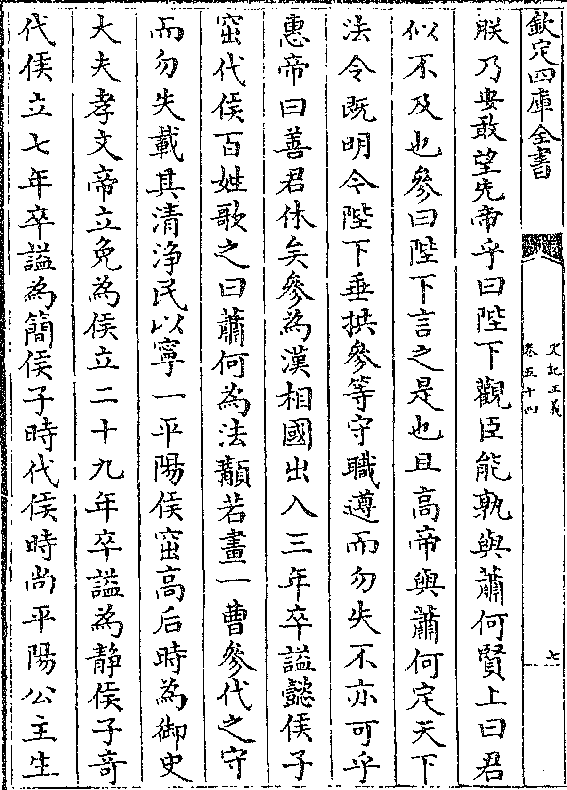 欽定四庫全書
史記正義
卷五十四
七
朕乃安敢望先帝乎曰陛下觀臣能孰與蕭何賢上曰君
似不及也參曰陛下言之是也且高帝與蕭何定天下
法令既明令陛下垂拱參等守職遵而勿失不亦可乎
惠帝曰善君休矣參為漢相國出入三年卒諡懿侯子
窋代侯百姓歌之曰蕭何為法顜若畫一曹參代之守
而勿失載其清淨民以寧一平陽侯窋高后時為御史
大夫孝文帝立免為侯立二十九年卒諡為靜侯子奇
代侯立七年卒諡為簡侯子時代侯時尚平陽公主生